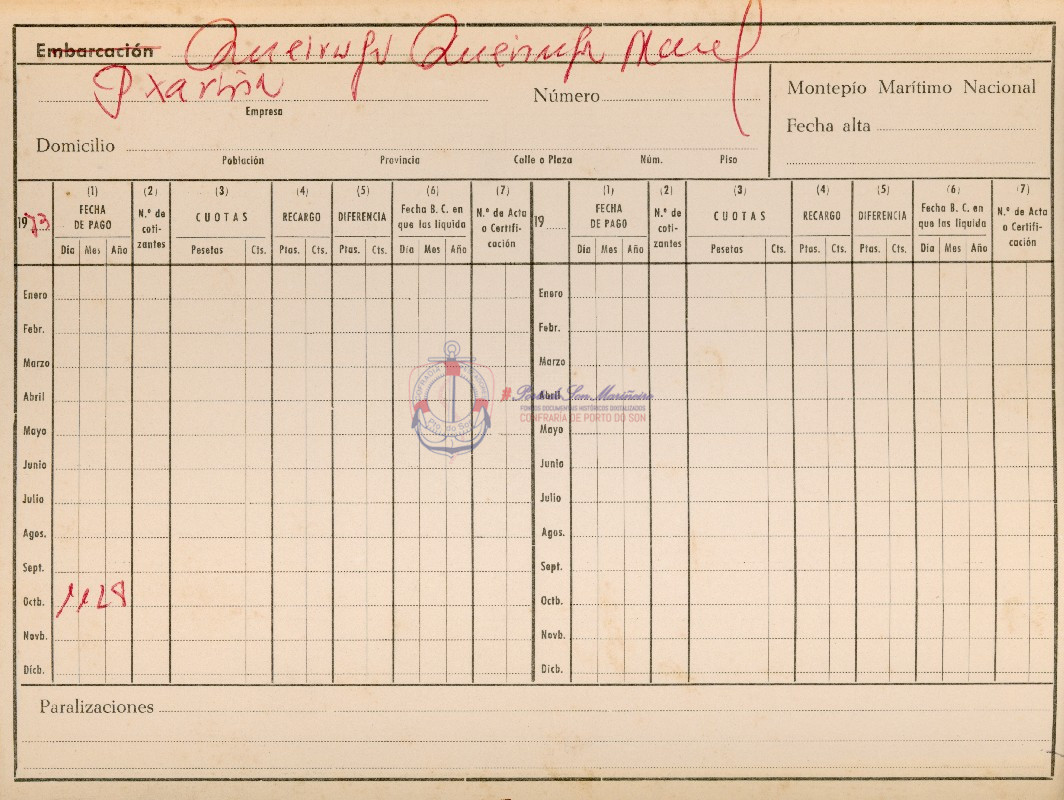 Embarcación Queiruga Queiruga Manel
Número
Empresa
Montepío Marítimo Nacional
Fecha alta
Domicilio
Población Provincia Calle o Plaza Núm. Piso
1973 (1) FECHA DE PAGO (2) N.º de cotizantes (3) CUOTAS (4) RECARGO (5) DIFERENCIA (6) Fecha B. C. en que las liquida (7) N.º de Acta o Certificación 19 (1) FECHA DE PAGO (2) N.º de cotizantes (3) CUOTAS (4) RECARGO (5) DIFERENCIA (6) Fecha B. C. en que las liquida (7) N.º de Acta o Certificación
Día Mes Año Pesetas Cts. Ptas. Cts. Ptas. Cts. Día Mes Año Día Mes Año Pesetas Cts. Ptas. Cts. Ptas. Cts. Día Mes Año
Enero Enero
Febr. Febr.
Marzo Marzo
Abril Abril
#Porto do Son Mariñeiro
FONDOS DOCUMENTAIS HISTÓRICOS DIXITALIZADOS
CONFRARÍA DE PORTO DO SON
Mayo Mayo
Junio Junio
Julio Julio
Agos. Agos.
Sept. Sept.
Octb. Octb.
Novb. Novb.
Dicb. Dicb.
Paralizaciones